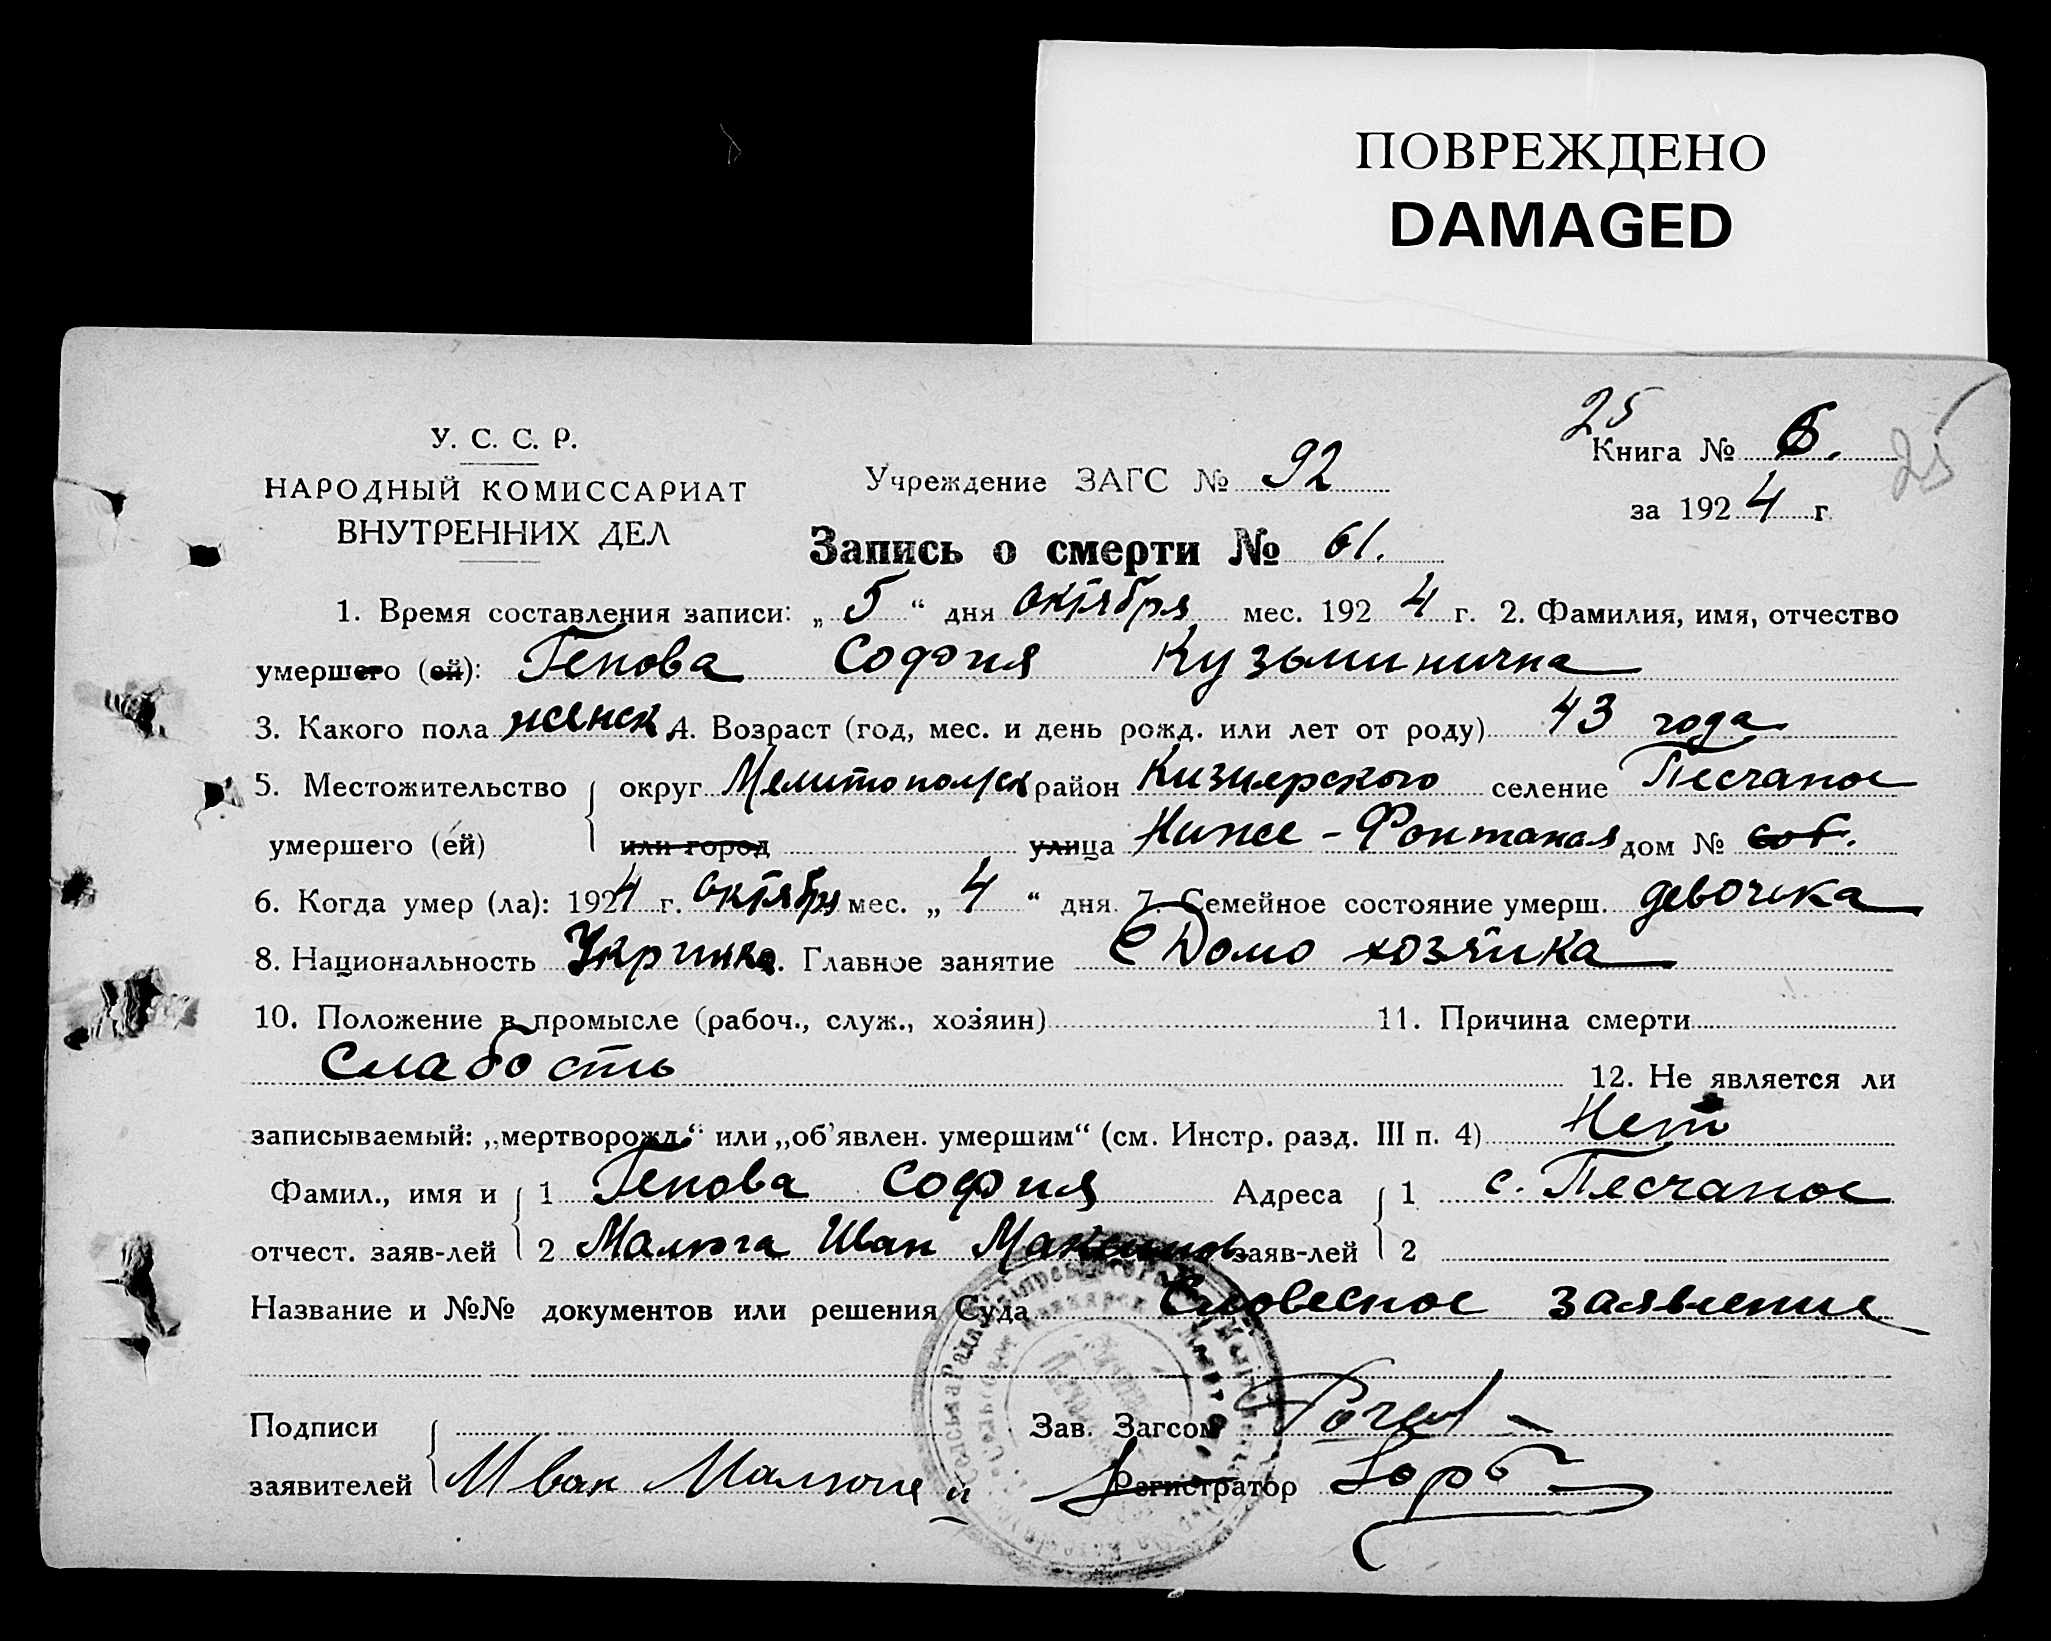 ПОВРЕЖДЕНО
DAMAGED
25
25
У. С. С. Р.
НАРОДНЫЙ КОМИССАРИАТ
ВНУТРЕННИХ ДЕЛ
Учреждение ЗАГС № 92
Книга № 6.
за 1924 г
Запись о смерти № 61.
1. Время составления записи: „5“ дня октября мес. 1924 г. 2. Фамилия, имя, отчество
умершего (ей): Генова София Кузьминична
3. Какого пола женск 4. Возраст (год, мес. и день рожд. или лет от роду) 43 года
5. Местожительство округ Мелитопольск район Кизиярского селение Песчаное
умершего (ей) или город улица Ниже-Фонтаная дом № соб.
6. Когда умер (ла): 1924 г. октября мес. „4“ дня 7. Семейное состояние умерш. девочка
8. Национальность Укринка. Главное занятие Домо хозяйка
10. Положение в промысле (рабоч., служ., хозяин) 11. Причина смерти
Слабость 12. Не является ли
записываемый: „мертворожд.“ или „об'явлен. умершим“ (см. Инстр. разд. III п. 4) Нет
Фамил., имя и 1 Генова София Адреса 1 с. Песчаное
отчест. заяв-лей 2 Малюга Иван заяв-лей 2
Название и №№ документов или решения Суда Словесное заявление
Подписи Зав. Загсом
заявителей Иван Регистратор